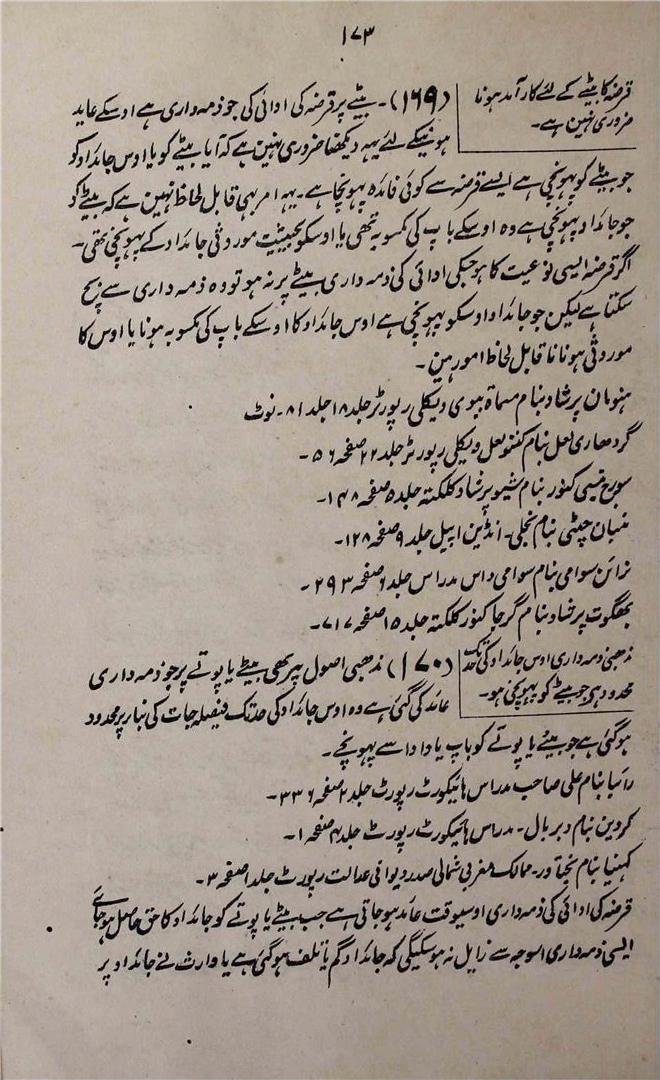 ۱۷۳
قرضہ کا بیٹے کے لئے کارآمد ہونا
ضروری نہین ہے۔
(۱۶۹)۔ بیٹے پر قرضہ کی ادائی کی جو ذمہ واری ہے اوسکے عاید
ہونیکے لئے یہہ دیکھنا ضروری نہین ہے کہ آیا بیٹے کو یا اوس جائداد کو
جو بیٹے کو پہونچی ہے ایسے قرضہ سے کوئی فائدہ پہونچا ہے۔ یہہ امر بہی قابل لحاظ نہین ہے کہ بیٹے کو
جو جائداد پہونچی ہے وہ اوسکے باپ کی مکسوبہ تھی یا اوسکو بحیثیت موروثی جائداد کے پہونچی تھی۔
اگر قرضہ ایسی نوعیت کا ہو جسکی ادائی کی ذمہ داری بیٹے پر نہ ہو تو وہ ذمہ داری سے بچ
سکتا ہے لیکن جو جائداد اوسکو پہونچی ہے اوس جائداد کا اوسکے باپ کی مکسوبہ ہونا یا اوس کا
موروثی ہونا ناقابل لحاظ امور ہین۔
ہنومان پرشاد بنام مسماۃ ببوی ویکلی رپورٹر جلد ۱۸ جلد ۸۱۔ نوٹ
گردھاری لعل بنام کنتو لعل ویکلی رپورٹر جلد ۲۲ صفحہ ۵۶۔
سورج بنسی کنور بنام شیو پرشاد کلکتہ جلد ۵ صفحہ ۱۴۸۔
چٹی بنام انڈین اپیل جلد ۹ صفحہ ۱۲۸۔
نرائن سوامی بنام سوامی داس مدراس جلد ۶ صفحہ ۲۹۳۔
بھگوت پرشاد بنام گرجا کنور کلکتہ جلد ۱۵ صفحہ ۷۱۷۔
مذھبی ذمہ داری اوس جائداد کی حد تک
محدود ہی جو بیٹے کو پہونچی ہو۔
(۱۷۰) مذھبی اصول پر بھی بیٹے یا پوتے پر جو ذمہ داری
عائد کی گئی ہے وہ اوس جائداد کی حد تک فیصلہ جات کی بنا پر محدود
ہو گئی ہے جو بیٹے یا پوتے کو باپ یا دادا سے پہونچے۔
بنام علی صاحب مدراس ہائیکورٹ رپورٹ جلد ۲ صفحہ ۳۳۶۔
کروپن بنام ویریال۔ مدراس ہائیکورٹ رپورٹ جلد ۴ صفحہ ۱۔
کہنیا بنام بختاور۔ ممالک مغربی شمالی صدر دیوانی عدالت رپورٹ جلد ۱ صفحہ ۳۔
قرضہ کی ادائی کی ذمہ داری اوسیوقت عائد ہو جاتی ہے جب بیٹے یا پوتے کو جائداد کا حق حاصل ہو جائے
ایسی ذمہ داری اسوجہ سے زایل نہ ہو سکیگی کہ جائداد گم یا تلف ہو گئی ہے یا وارث نے جائداد پر